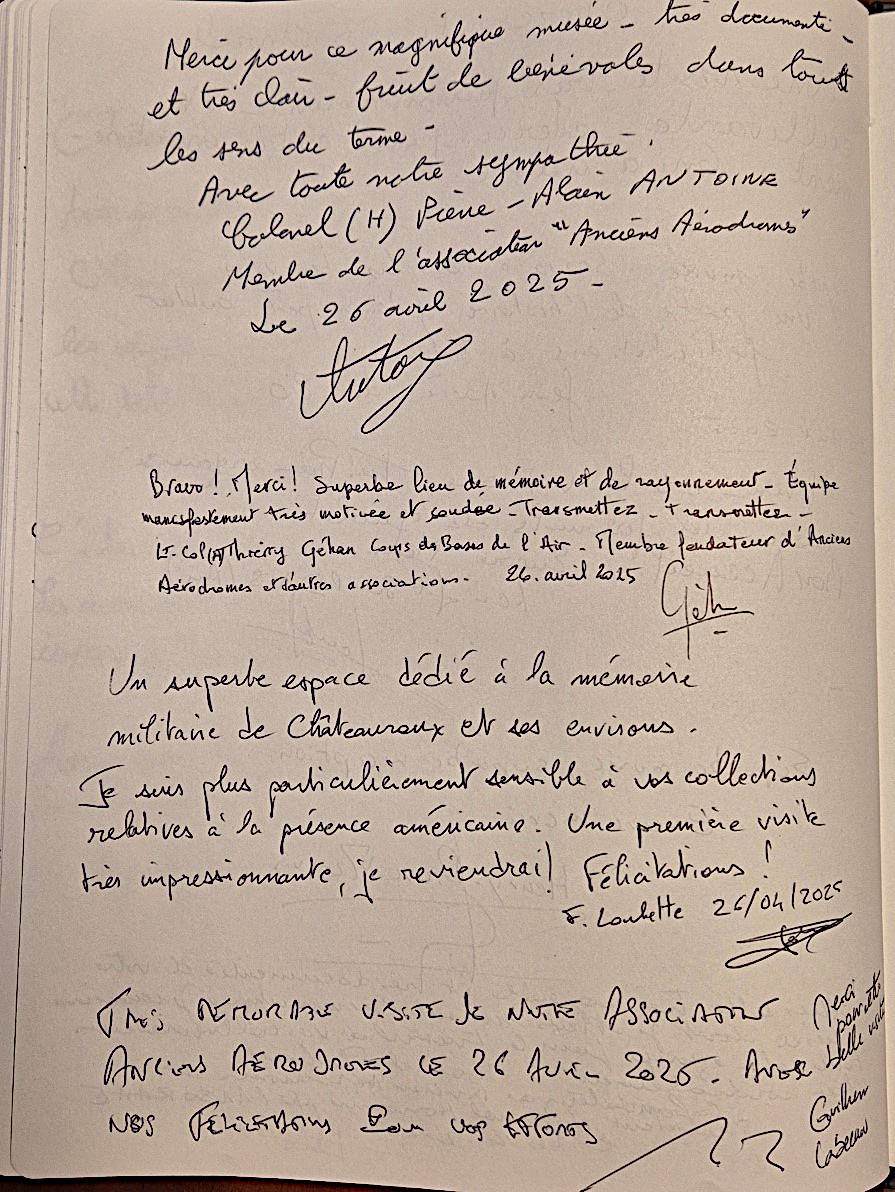 Merci pour ce magnifique musée - très documenté -
et très clair - fruit de bénévoles dans tous
les sens du terme -
Avec toute notre sympathie.
Colonel (H) Pierre-Alain ANTOINE
Membre de l'association "Anciens Aérodromes"
Le 26 avril 2025 -
Bravo ! Merci ! Superbe lieu de mémoire et de rayonnement - Équipe
manifestement très motivée et soudée - Transmettez - Transmettez -
Lt-Col(H) Thierry Géhan Corps des Bases de l'Air - Membre fondateur d'Anciens
Aérodromes et d'autres associations - 26 avril 2025
Un superbe espace dédié à la mémoire
militaire de Châteauroux et ses environs.
Je suis plus particulièrement sensible à vos collections
relatives à la présence américaine. Une première visite
très impressionnante, je reviendrai ! Félicitations !
F. Loubette 26/04/2025
TRÈS MÉMORABLE VISITE DE NOTRE ASSOCIATION
ANCIENS AÉRODROMES CE 26 AVRIL 2025 - AVEC
NOS FÉLICITATIONS POUR VOS EFFORTS
Merci
pour cette
belle visite
Guilhem